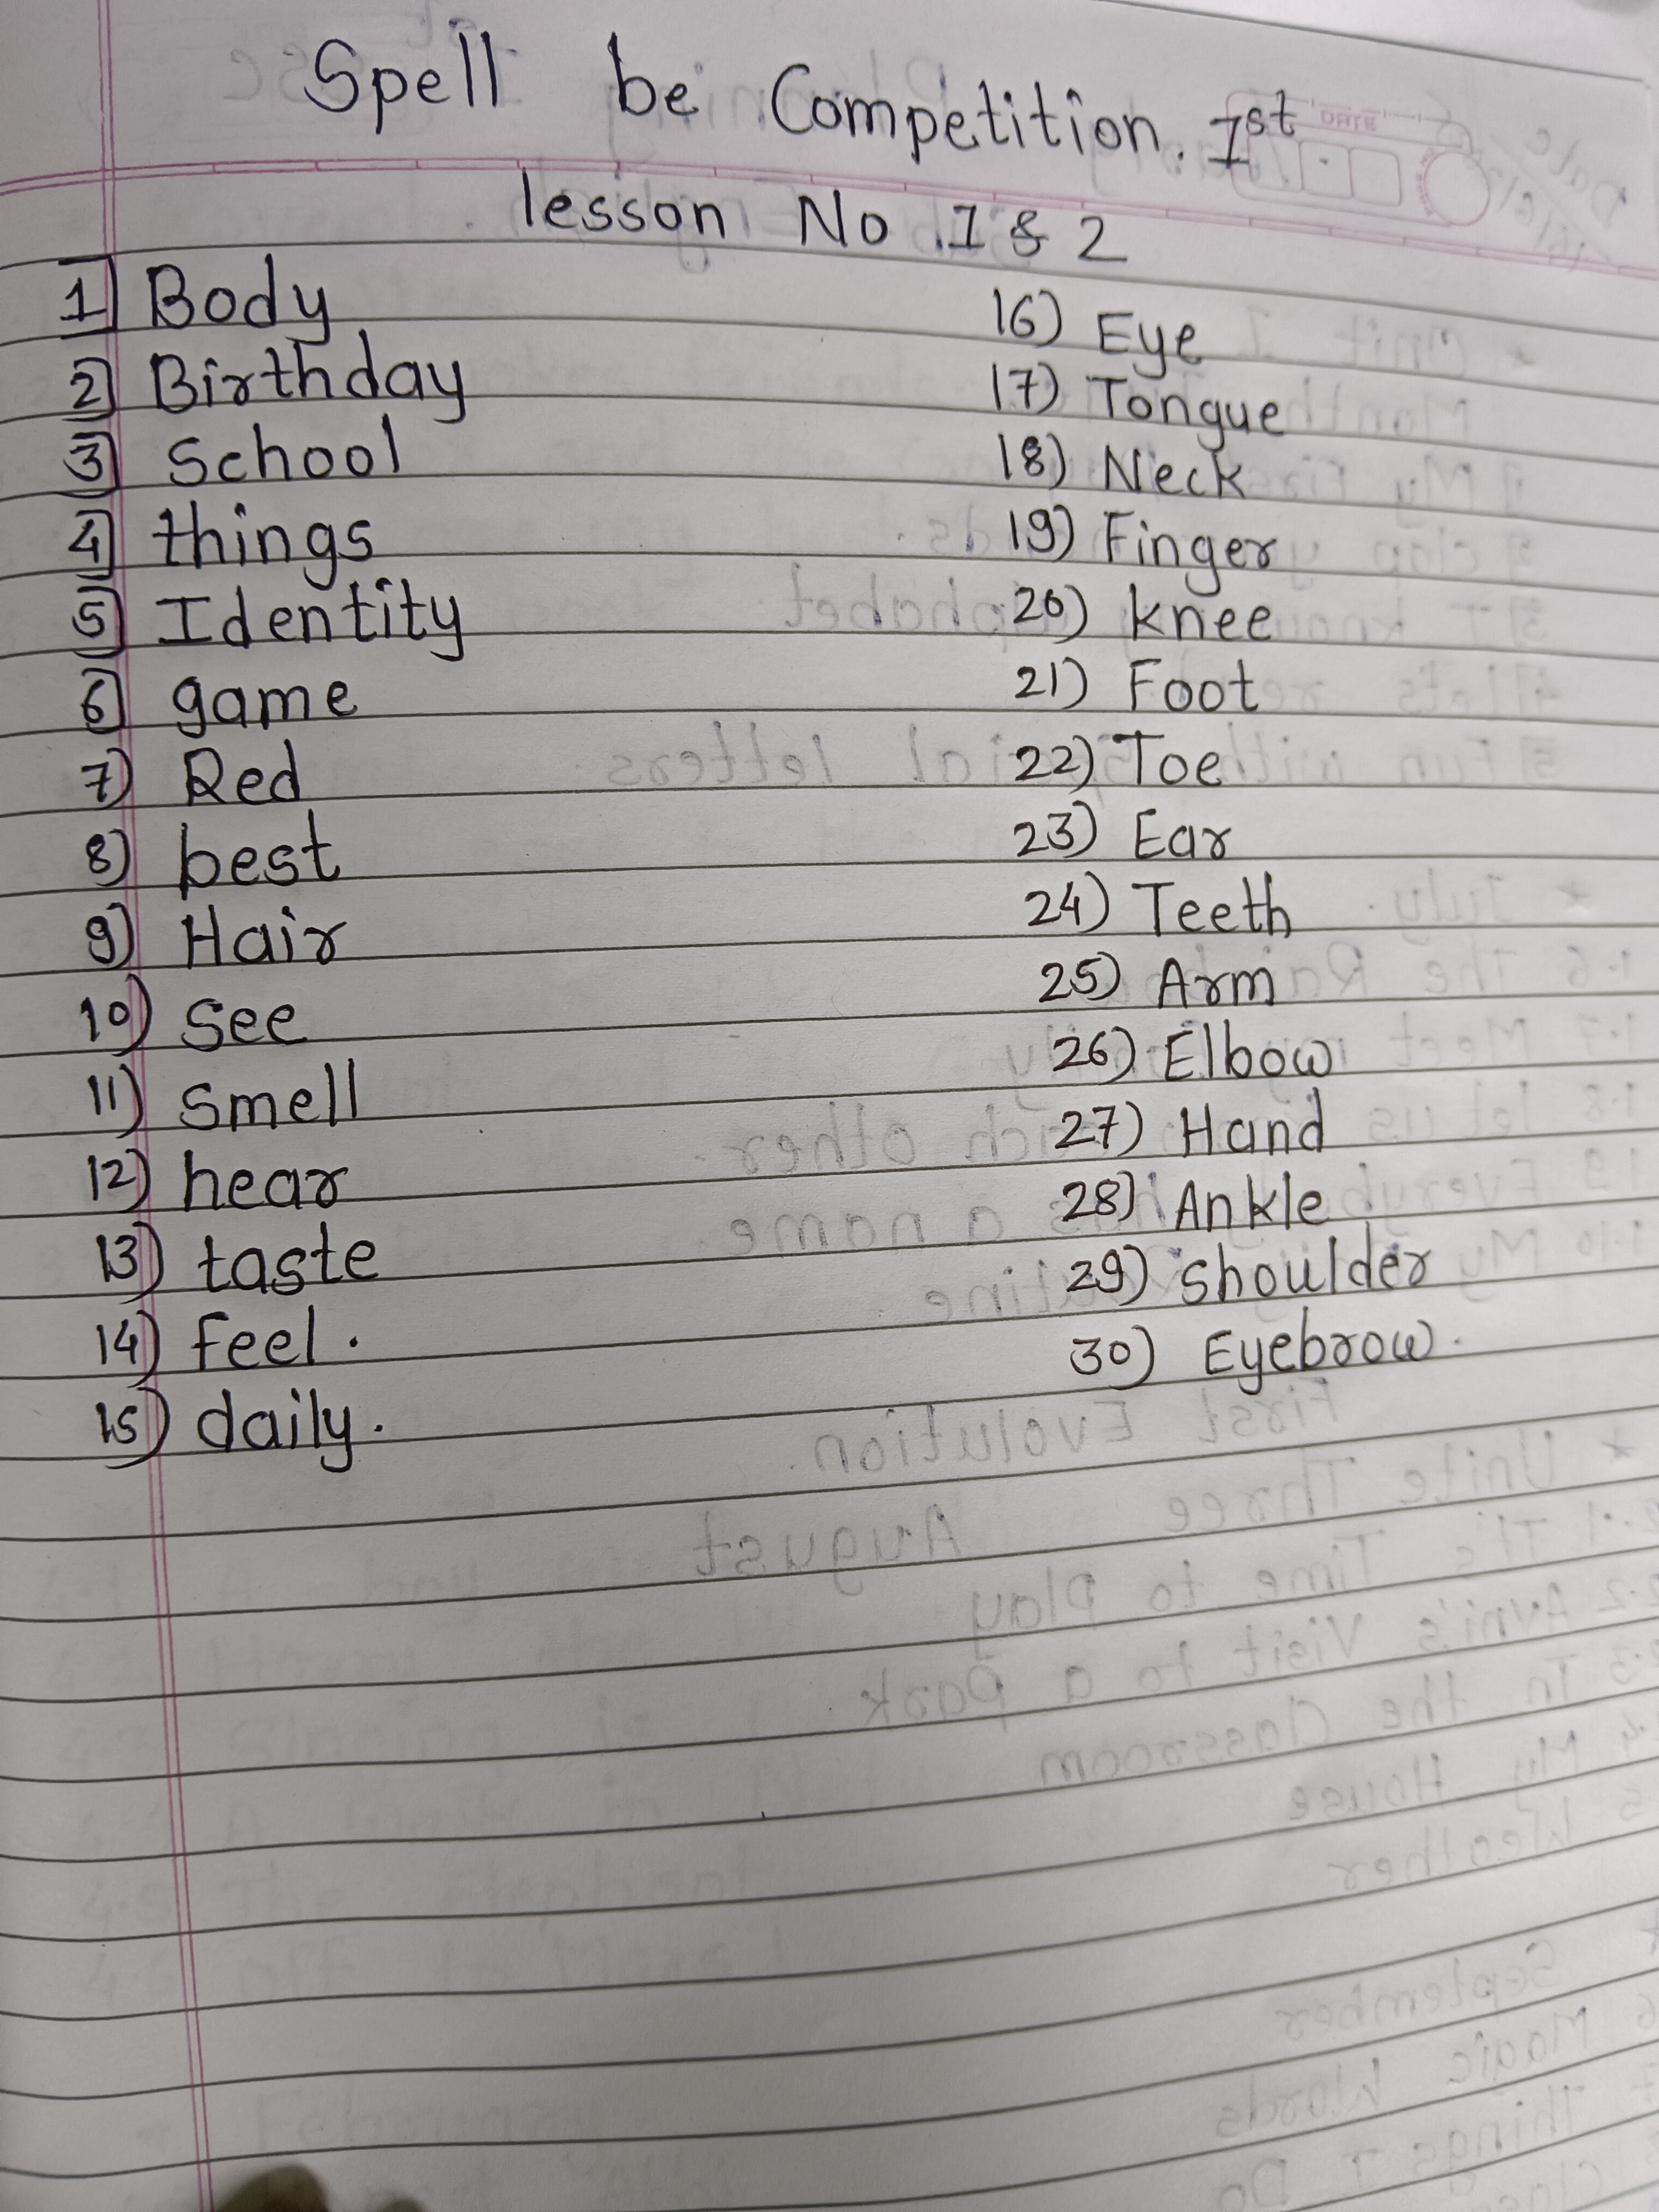 Spell be Competition. Ist
lesson No .1 & 2
1) Body
2) Birthday
3) School
4) things
5) Identity
6) game
7) Red
8) best
9) Hair
10) see
11) smell
12) hear
13) taste
14) feel.
15) daily.
16) Eye
17) Tongue
18) Neck
19) Finger
20) knee
21) Foot
22) Toe
23) Ear
24) Teeth
25) Arm
26) Elbow
27) Hand
28) Ankle
29) shoulder
30) Eyebrow.